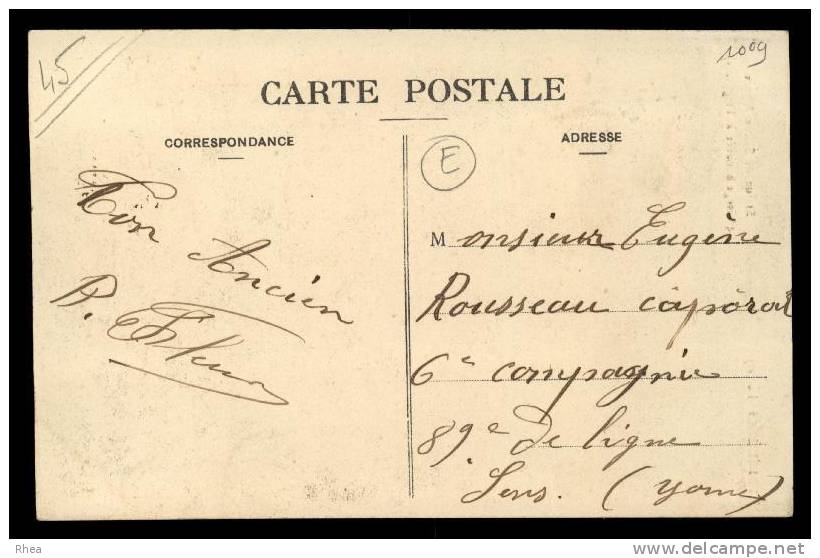 45
1009
CARTE POSTALE
CORRESPONDANCE
ADRESSE
E
Ton Ancien
P.
Monsieur Eugène
Rousseau caporal
6e compagnie
89e de ligne
Sens. (Yonne)
Rhea
delcampe.net